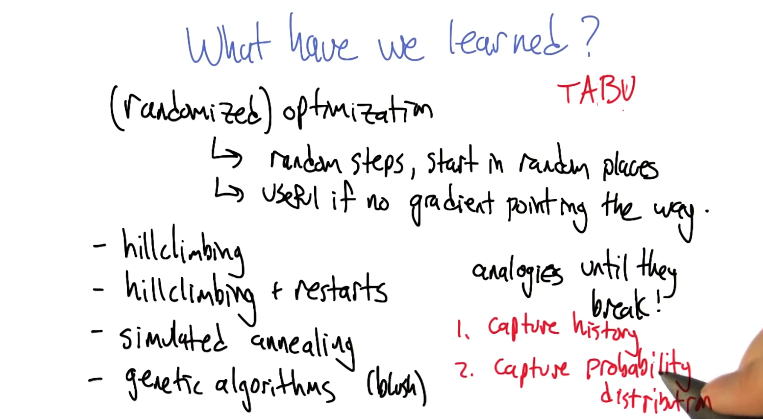 What have we learned?
TABU
(randomized) optimization
↳ random steps, start in random places
↳ useful if no gradient pointing the way.
- hillclimbing
- hillclimbing + restarts
- simulated annealing
- genetic algorithms (blush)
analogies until they
break!
1. capture history
2. capture probability
distribution